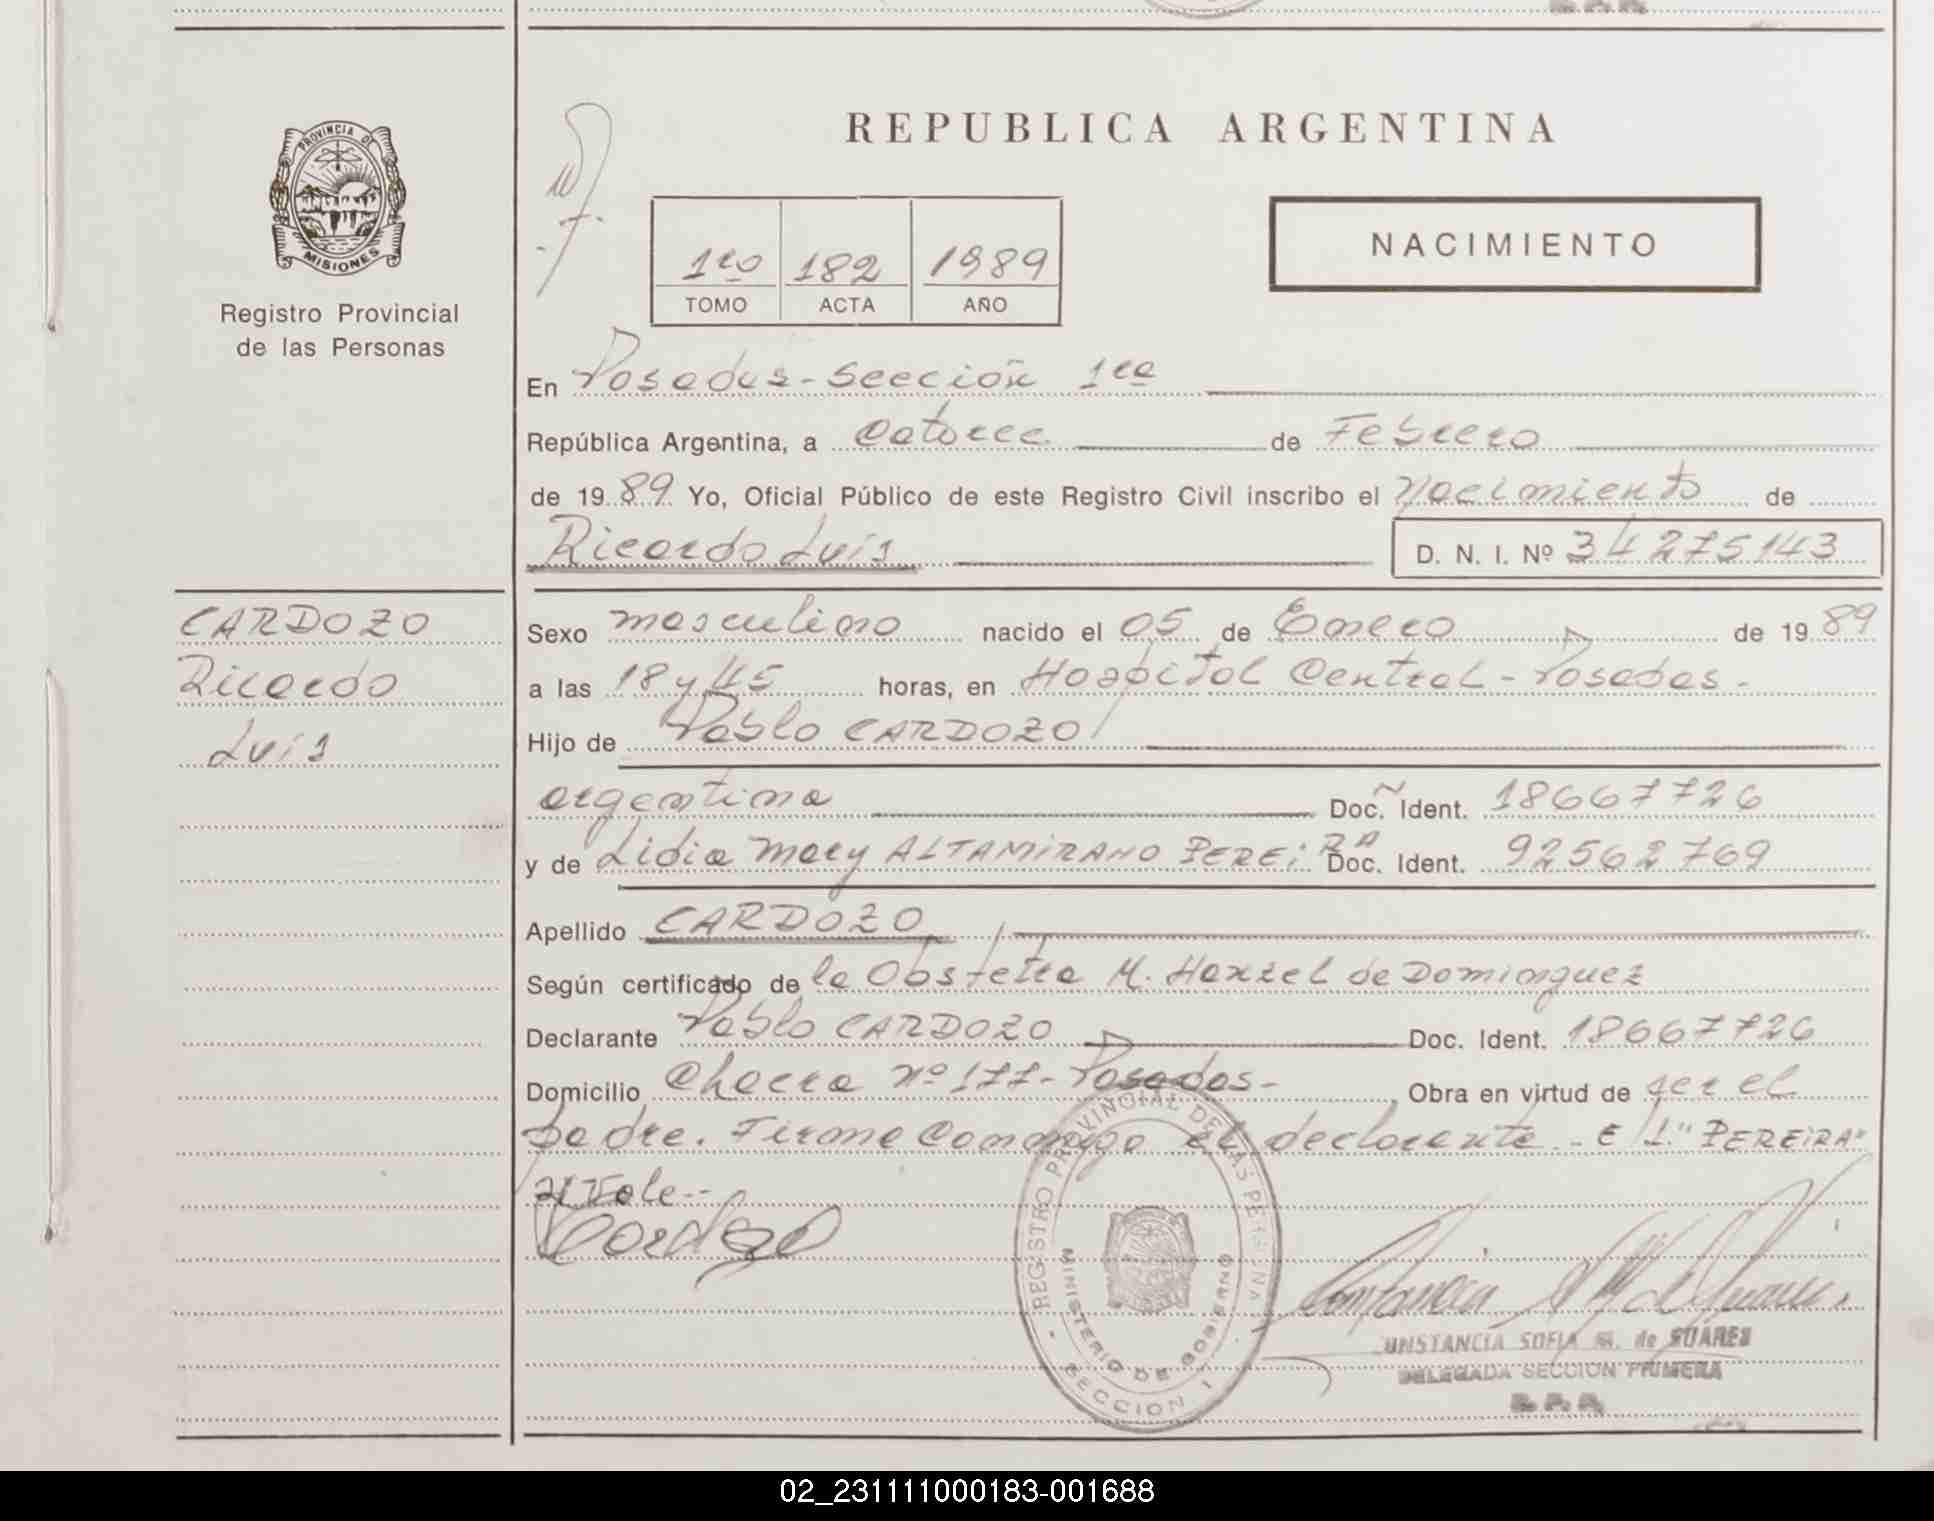 REPUBLICA ARGENTINA
PROVINCIA DE
MISIONES
Registro Provincial
de las Personas
1ro 182 1989
TOMO ACTA AÑO
NACIMIENTO
En Posadas - Sección 1ra
República Argentina, a Catorce de Febrero
de 1989 Yo, Oficial Público de este Registro Civil inscribo el Nacimiento de
Ricardo Luis D. N. I. Nº 34275143
CARDOZO
Ricardo
Luis
Sexo masculino nacido el 05 de Enero de 1989
a las 18 y 45 horas, en Hospital Central - Posadas -
Hijo de Pablo CARDOZO
argentino Doc. Ident. 18667726
y de Lidia Mary ALTAMIRANO PEREiRA Doc. Ident. 92562769
Apellido CARDOZO
Según certificado de la Obstetra M. Henzel de Dominguez
Declarante Pablo CARDOZO Doc. Ident. 18667726
Domicilio Chacra nº 177 - Posadas - Obra en virtud de ser el
padre. Firma Conmigo el declarante - E/L "PEREiRA"
Vale --
Cardozo
REGISTRO PROVINCIAL DE LAS PERSONAS
MINISTERIO DE GOBIERNO
- SECCION 1 -
CONSTANCIA SOFIA M. de SUAREZ
DELEGADA SECCION PRIMERA
R.P.P.
02_231111000183-001688